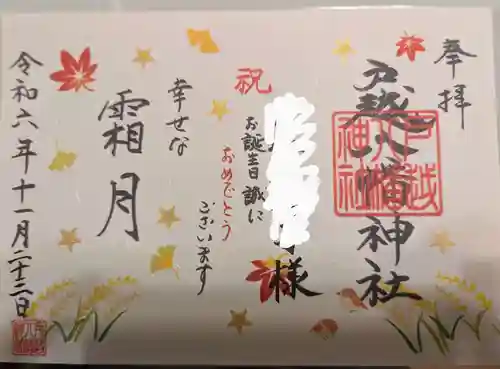 奉拝
戸越八幡神社
戸越八幡神社
様
祝
お誕生日誠に
おめでとう
ございます
幸せな
霜月
令和六年十一月二十三日